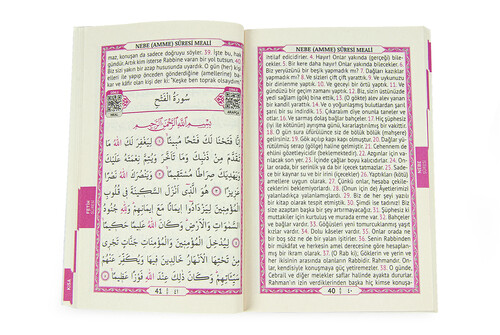 NEBE (AMME) SÛRESİ MEALİ
ihtilaf edicilerdir. 4. Hayır! Onlar yakında (gerçeği) bile-
cekler. 5. Bir kere daha hayır! Onlar yakında bilecekler. 6.
Biz yeryüzünü bir beşik yapmadık mı? Dağları kazıklar
yapmadık mı? 8. Ve sizleri çift çift yarattık. 9. Uykunuzu
bir dinlenme yaptık. 10. Ve geceyi bir örtü yaptık. 11.
gündüzü de geçim zamanı yaptık. 12. Biz, sizin üstünüzde
yedi sağlam (gök) bina ettik. 13. (O gökte) alev alev yanan
bir kandil yarattık. 14.
şarıl şarıl bir su indirdik. 15. Onunla taneler ve
otlar, 16. ve sarmaş dolaş bağlar bahçeler. 17. Hiç şüphesiz
18. O gün sûra üfürülünce siz de bölük bölük (mahşere)
gelirsiniz. 19. Gök açılıp kapı kapı olmuştur. 20. Dağlar
yürütülüp serap (gölge) haline gelmiştir. 21. Cehennem de
24. On-
lar orada, bir serinlik ve içilecek şey tatmazlar. 25. Sade-
ce bir kaynar su ve bir irini (içecekler) 26. Yaptıkları (kötü)
amellere uygun olarak, 27. Çünkü onlar, hesaba çekile-
ceklerini beklemezlerdi. 28. (Onun için de) Âyetlerimizi
yalanladıkça yalanlamışlardı. 29. Biz de her şey yazılı
bir kitap olarak tespit etmiştik. 30. Şimdi ise tadınız! Biz
size azaptan başka bir şey artırmayacağız. 31. Şüphesiz ki
muttakiler için kurtuluş ve murada erme var. 32. Bahçeler
var, üzüm bağları var. 33. Göğüsleri yeni tomurcuklanmış yaşıt
kızlar var. 34. Dolu kâseler vardır. 35. Onlar orada ne
bir boş söz ne de bir yalan işitirler. 36. Senin Rabbinden
bir mükâfat ve herkesin amel derecesine göre hesabınca
bir ihsan olmak üzere. 37. (O Rab ki); Göklerin ve yerin ve
ikisinin arasında olanların Rabbidir. Rahmandır. On-
lar, kendisiyle konuşmaya güç yetiremezler. 38. O günde,
Cebrail ve diğer melekler saflar halinde ayakta dururlar.
Rahman'ın izin verdikinden başka hiç kimse konuşa-
40 ٤٠
NEBE
NEBE (AMME) SÛRESİ MEALİ
maz, konuşan da sadece doğruyu söyler. 39. İşte bu, hak
gündür. Artık kim isterse Rabbine varan bir yol tutsun. 40.
Biz sizi yakın bir azap hususunda uyardık. O gün (her) kişi
elleri ile yapıp önceden gönderdiğine (amellerine) ba-
kar ve kâfir olan kişi der ki: "Keşke ben toprak olsaydım!"
سُورَةُ الْفَتْحِ
بِسْمِ اللّٰهِ الرَّحْمٰنِ الرَّحِيمِ
اِنَّا فَتَحْنَا لَكَ فَتْحًا مُبِينًا ۝ لِيَغْفِرَ لَكَ اللّٰهُ مَا
تَقَدَّمَ مِنْ ذَنْبِكَ وَمَا تَاَخَّرَ وَيُتِمَّ نِعْمَتَهُ عَلَيْكَ
وَيَهْدِيَكَ صِرَاطًا مُسْتَقِيمًا ۝ وَيَنْصُرَكَ اللّٰهُ نَصْرًا
عَزِيزًا ۝ هُوَ الَّذِى اَنْزَلَ السَّكِينَةَ فِى قُلُوبِ
الْمُؤْمِنِينَ لِيَزْدَادُوا اِيمَانًا مَعَ اِيمَانِهِمْ وَلِلّٰهِ جُنُودُ
السَّمٰوَاتِ وَالْاَرْضِ وَكَانَ اللّٰهُ عَلِيمًا حَكِيمًا ۝
لِيُدْخِلَ الْمُؤْمِنِينَ وَالْمُؤْمِنَاتِ جَنَّاتٍ تَجْرِى
مِنْ تَحْتِهَا الْاَنْهَارُ خَالِدِينَ فِيهَا وَيُكَفِّرَ عَنْهُمْ
سَيِّئَاتِهِمْ وَكَانَ ذٰلِكَ عِنْدَ اللّٰهِ فَوْزًا عَظِيمًا ۝
41 ٤١
FETİH